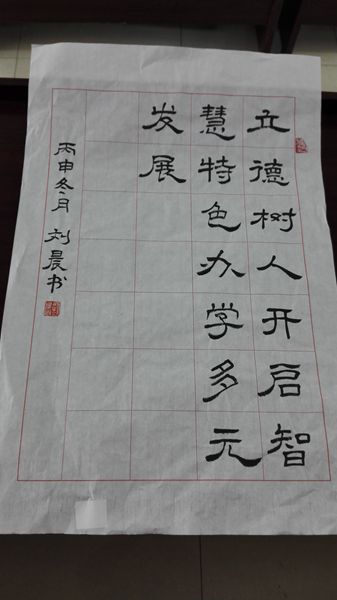 立德树人开启智
慧特色办学多元
发展
丙申冬月刘晨书